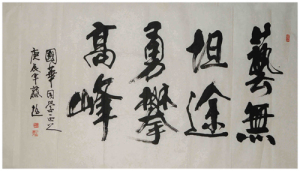 藝無
坦途
勇攀
高峰
國華同學正之
庚辰年